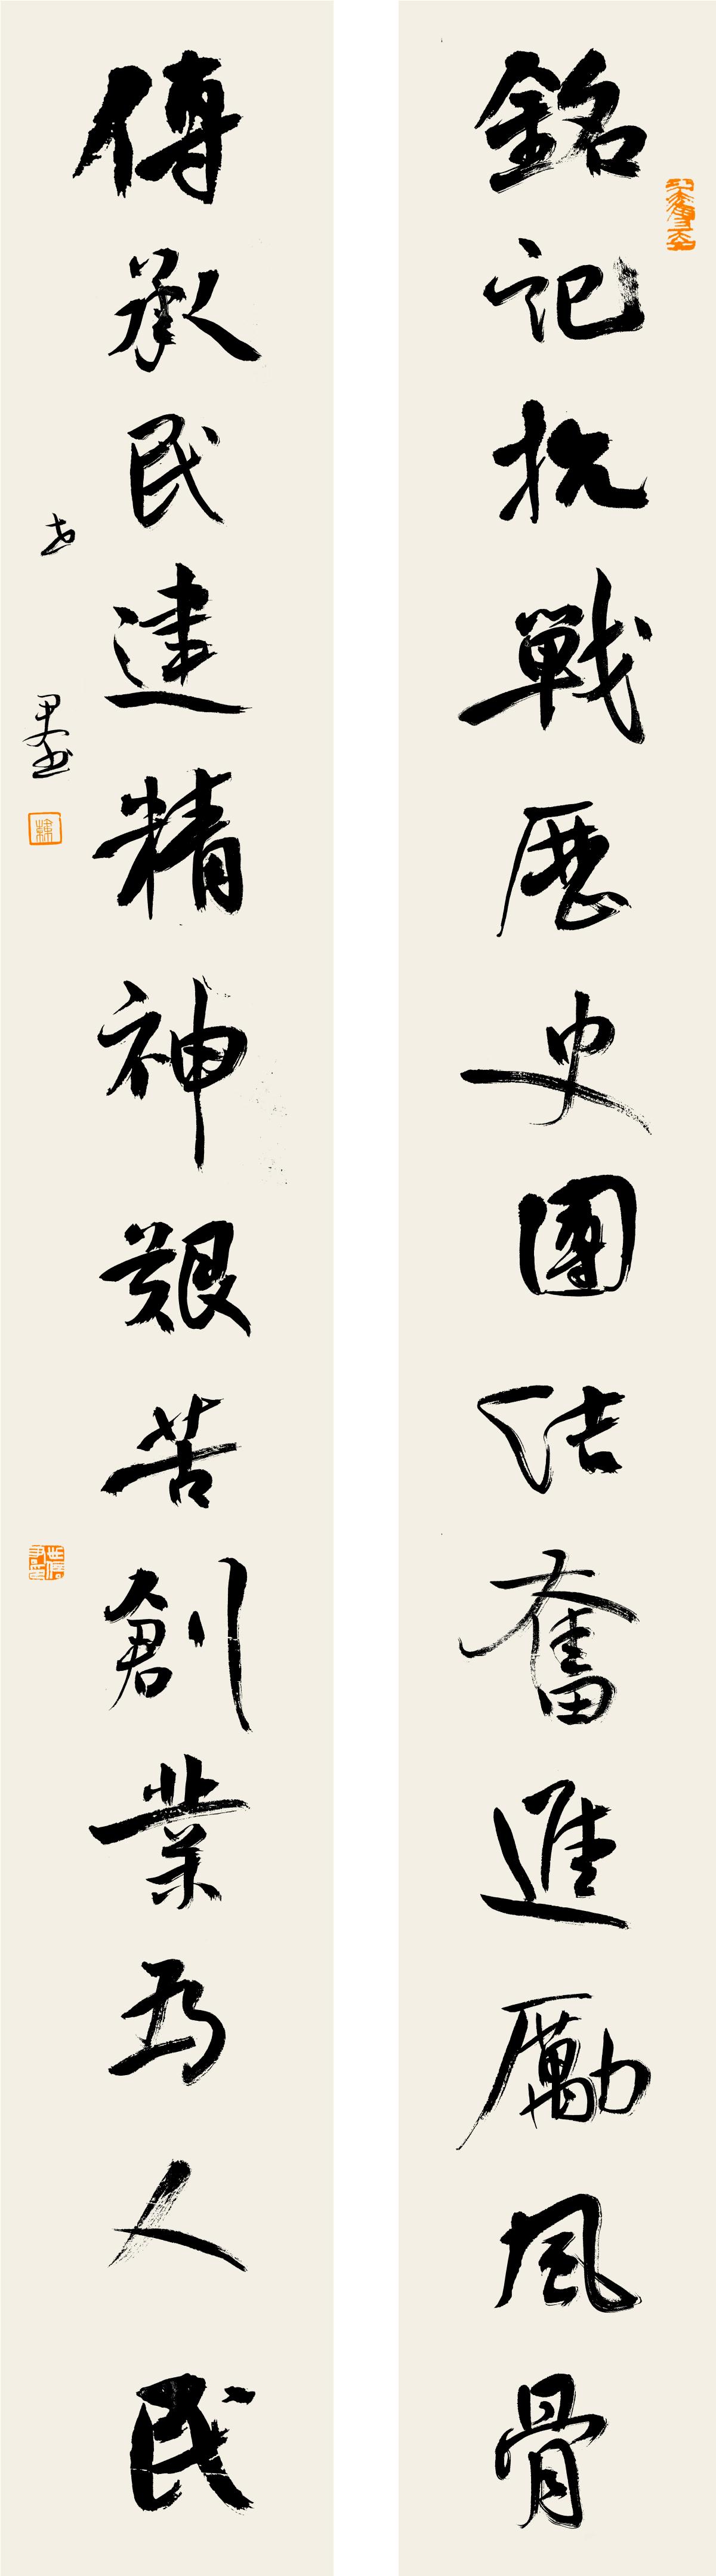 銘記抗戰歷史團结奮進勵風骨
傳承民建精神艱苦創業為人民